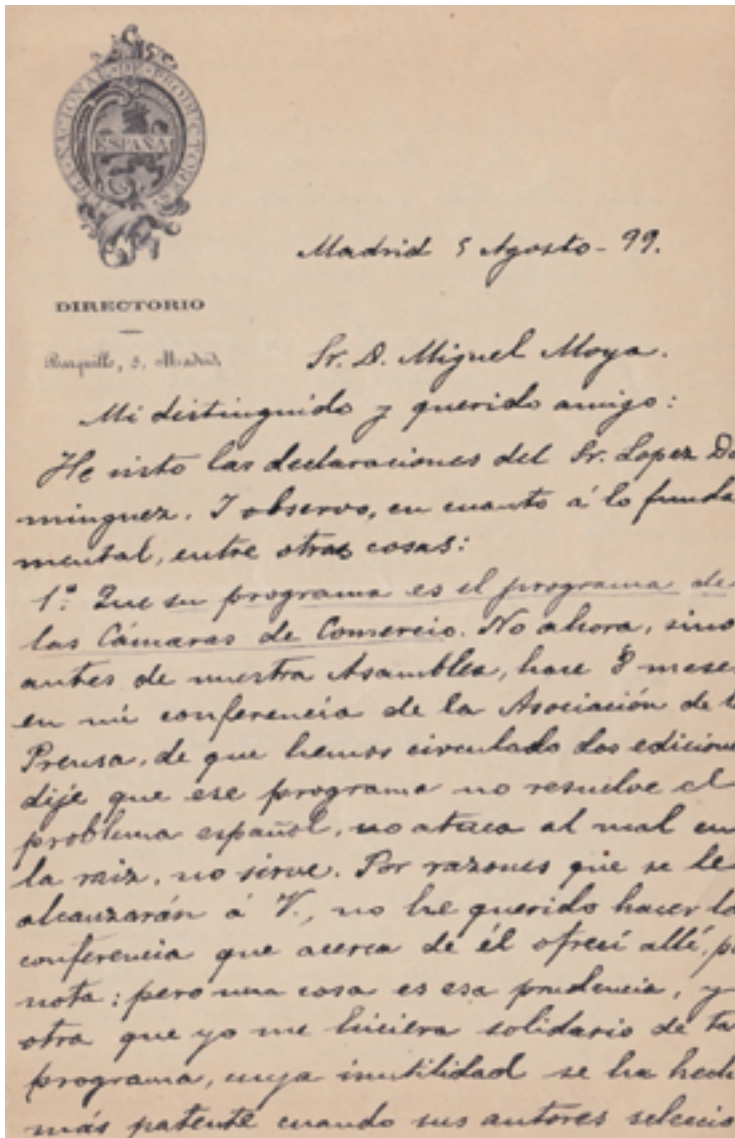 LIGA NACIONAL DE PRODUCTORES
ESPAÑA
DIRECTORIO
Barquillo, 5, Madrid.
Madrid 5 Agosto - 99.
Sr. D. Miguel Moya.
Mi distinguido y querido amigo:
He visto las declaraciones del Sr. Lopez Do
minguez. Y observo, en cuanto á lo funda
mental, entre otras cosas:
1.º Que su programa es el programa de
las Cámaras de Comercio. No ahora, sino
antes de nuestra Asamblea, hace 8 mese
en mi conferencia de la Asociación de l
Prensa, de que hemos circulado dos edicione
dije que ese programa no resuelve el
problema español, no ataca al mal en
la raiz, no sirve. Por razones que se le
alcanzarán á V., no he querido hacer la
conferencia que acerca de él ofrecí allí, p
nota: pero una cosa es esa prudencia, y
otra que yo me hiciera solidario de ta
programa, cuya inutilidad se ha hech
más patente cuando sus autores seleccio